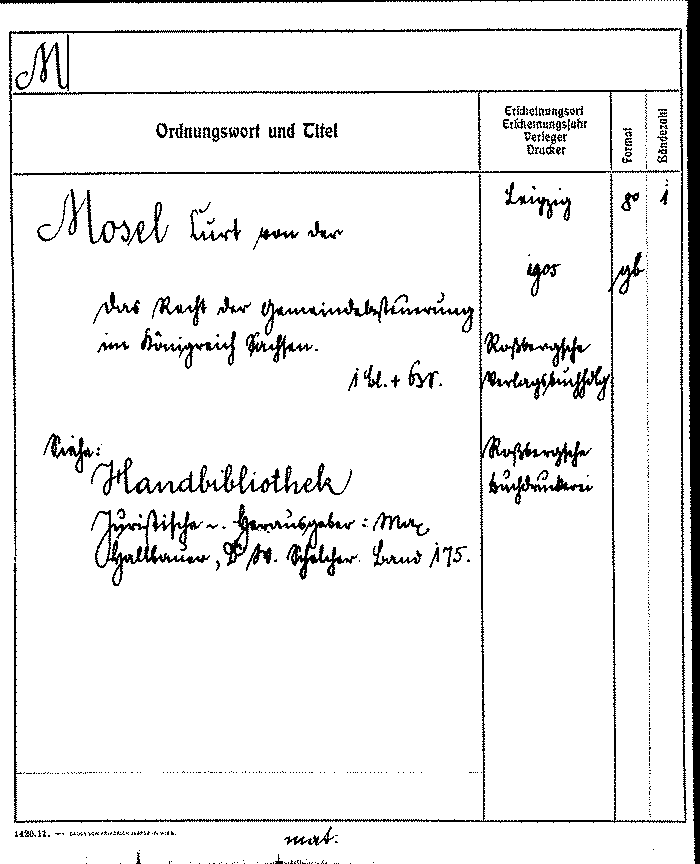 M
Ordnungswort und Titel
Erscheinungsort
Erscheinungsjahr
Verleger
Drucker
Format
Bändezahl
Mosel Curt von der
Leipzig
8°
1
1905
gb
Das Recht der Gemeindebesteuerung
im Königreich Sachsen.
1 Bl. +
Roßbergsche
Verlagsbuchhdlg
Siehe:
Handbibliothek
Juristische -. Herausgeber: Max
Hallbauer, D W. Schelcher. Band 175.
Roßbergsche
Buchdruckerei
1420.12.
mat.